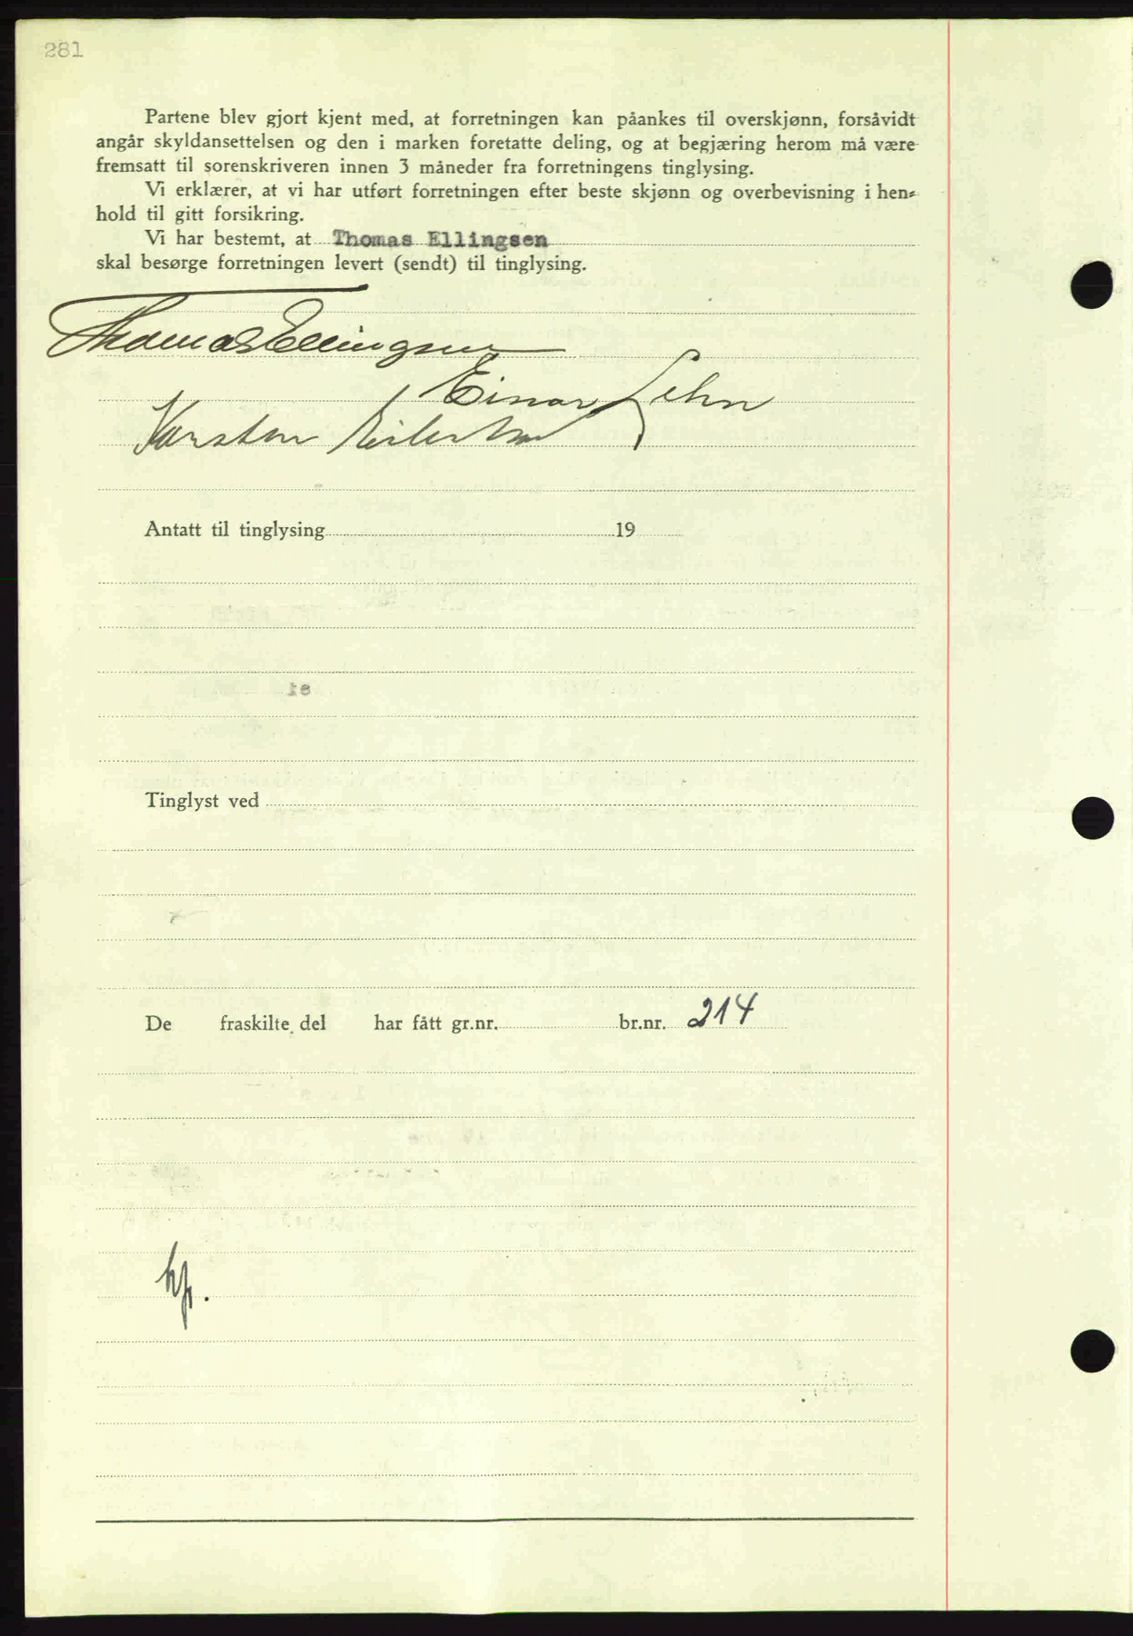 281
Partene blev gjort kjent med, at forretningen kan påankes til overskjønn, forsåvidt
angår skyldansettelsen og den i marken foretatte deling, og at begjæring herom må være
fremsatt til sorenskriveren innen 3 måneder fra forretningens tinglysing.
Vi erklærer, at vi har utført forretningen efter beste skjønn og overbevisning i hen-
hold til gitt forsikring.
Vi har bestemt, at Thomas Ellingsen
skal besørge forretningen levert (sendt) til tinglysing.
Thomas Ellingsen
Einar Lehn
Karsten Eilertsen
Antatt til tinglysing 19
Tinglyst ved
De fraskilte del har fått gr.nr. br.nr. 214